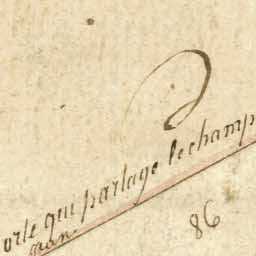 orte qui partage le champ
86